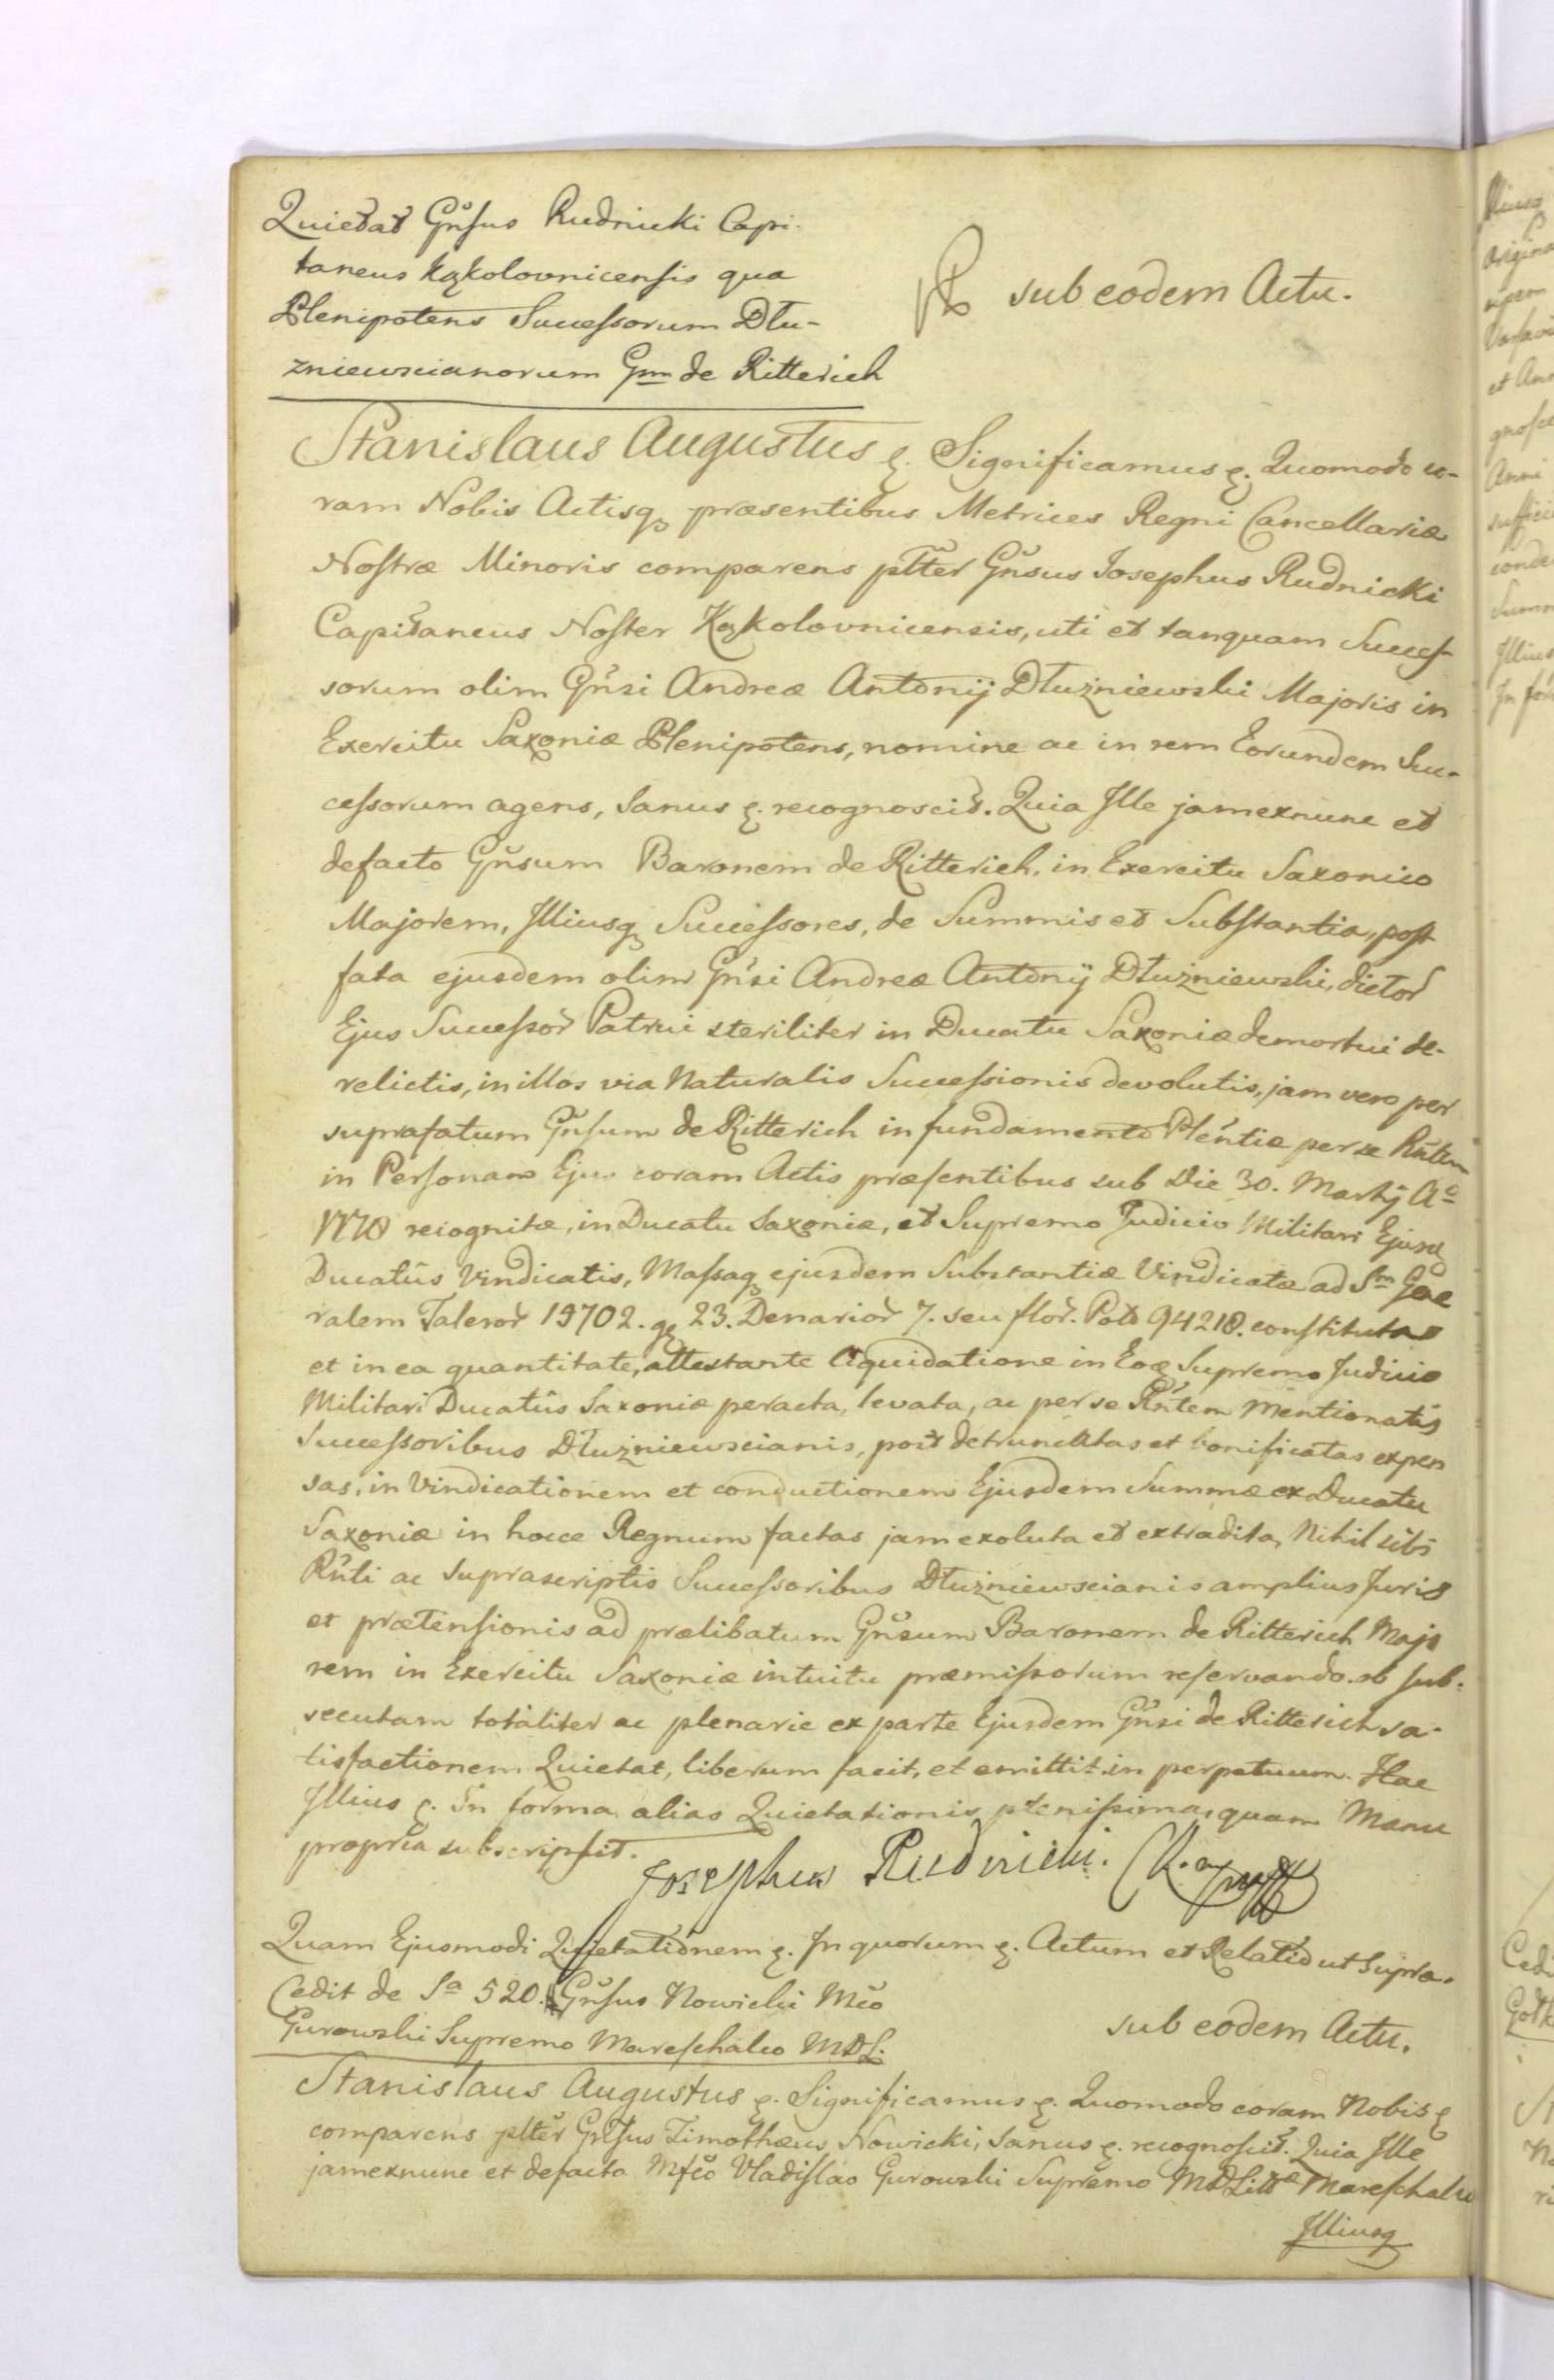 Quietat Gnsus Rudnicki Capi-
taneus Kąkolovnicensis qua
Plenipotens Successorum Dłu-
zniewscianorum Gnm de Ritterich
sub eodem Actu.
Stanislaus Augustus &. Significamus &. Quomodo co-
ram Nobis Actisq præsentibus Metrices Regni Cancellariæ
Nostræ Minoris comparens pltter Gnsus Josephus Rudnicki
Capitaneus Noster Kąkolovnicensis, uti et tanquam Succes-
sorum olim Gnsi Andreæ Antonij Dłużniewski Majoris in
Exercitu Saxoniæ Plenipotens, nomine ac in rem Eorundem Suc-
cessorum agens, Sanus &. recognoscit. Quia Ille jamexnunc et
defacto Gnsum Baronem de Ritterich, in Exercitu Saxonico
Majorem, Illiusq Successores, de Summis et Substantia, post
fata ejusdem olim Gnsi Andreæ Antonij Dłużniewski, dictor
Ejus Successor Patrui steriliter in Ducatu Saxoniæ demortui de-
relictis, in illos via Naturalis Successionis devolutis, jam vero per
suprafatum Gnsum de Ritterich in fundamento Plentiæ per se Rntem
in Personam Ejus coram Actis præsentibus sub Die 30. Martij Ao
1778 recognitæ, in Ducatu Saxoniæ, et Supremo Judicio Militari Ejusd
Ducatûs Vindicatis, Massaq ejusdem Substantiæ Vindicatæ ad Sm Gne
ralem Taleror 19702. gq 23. Denarior 7. seu flor. Pol 94218. constituta
et in ea quantitate, attestante Liquidatione in Eoq Supremo Judicio
Militari Ducatûs Saxoniæ peracta, levata, ac per se Rntem Mentionatis
Successoribus Dłużniewscianis, post detruncatas et bonificatas expen
sas, in Vindicationem et conductionem Ejusdem Summæ ex Ducatu
Saxoniæ in hocce Regnum factas jam exoluta et extradita, Nihil sibi
Rnti ac Suprascriptis Successoribus Dłużniewscianis amplius Juris
et prætensionis ad prælibatum Gnsum Baronem de Ritterich Majo
rem in Exercitu Saxoniæ intuitu præmissorum reservando. ob sub-
secutam totaliter ac plenarie ex parte Ejusdem Gnsi de Ritterich sa-
tisfactionem Quietat, liberum facit, et emittit in perpetuum. Hac
Illius &. In forma alias Quietationis plenissima, quam Manu
propria subscripsit.
Josephus Rudnicki.
Quam Ejusmodi Quietationem &. In quorum &. Actum et Relatio ut supra.
Cedit de Sa 520. Gnsus Nowicki Mco
Gurowski Supremo Mareschalco MDL.
sub eodem Actu.
Stanislaus Augustus &. Significamus &. Quomodo coram Nobis &
comparens pltter Gnsus Timothæus Nowicki, Sanus &. recognoscit. Quia Ille
jamexnunc et defacto Mfco Vladislao Gurowski Supremo MDLittæ Mareschalco
Illiusq